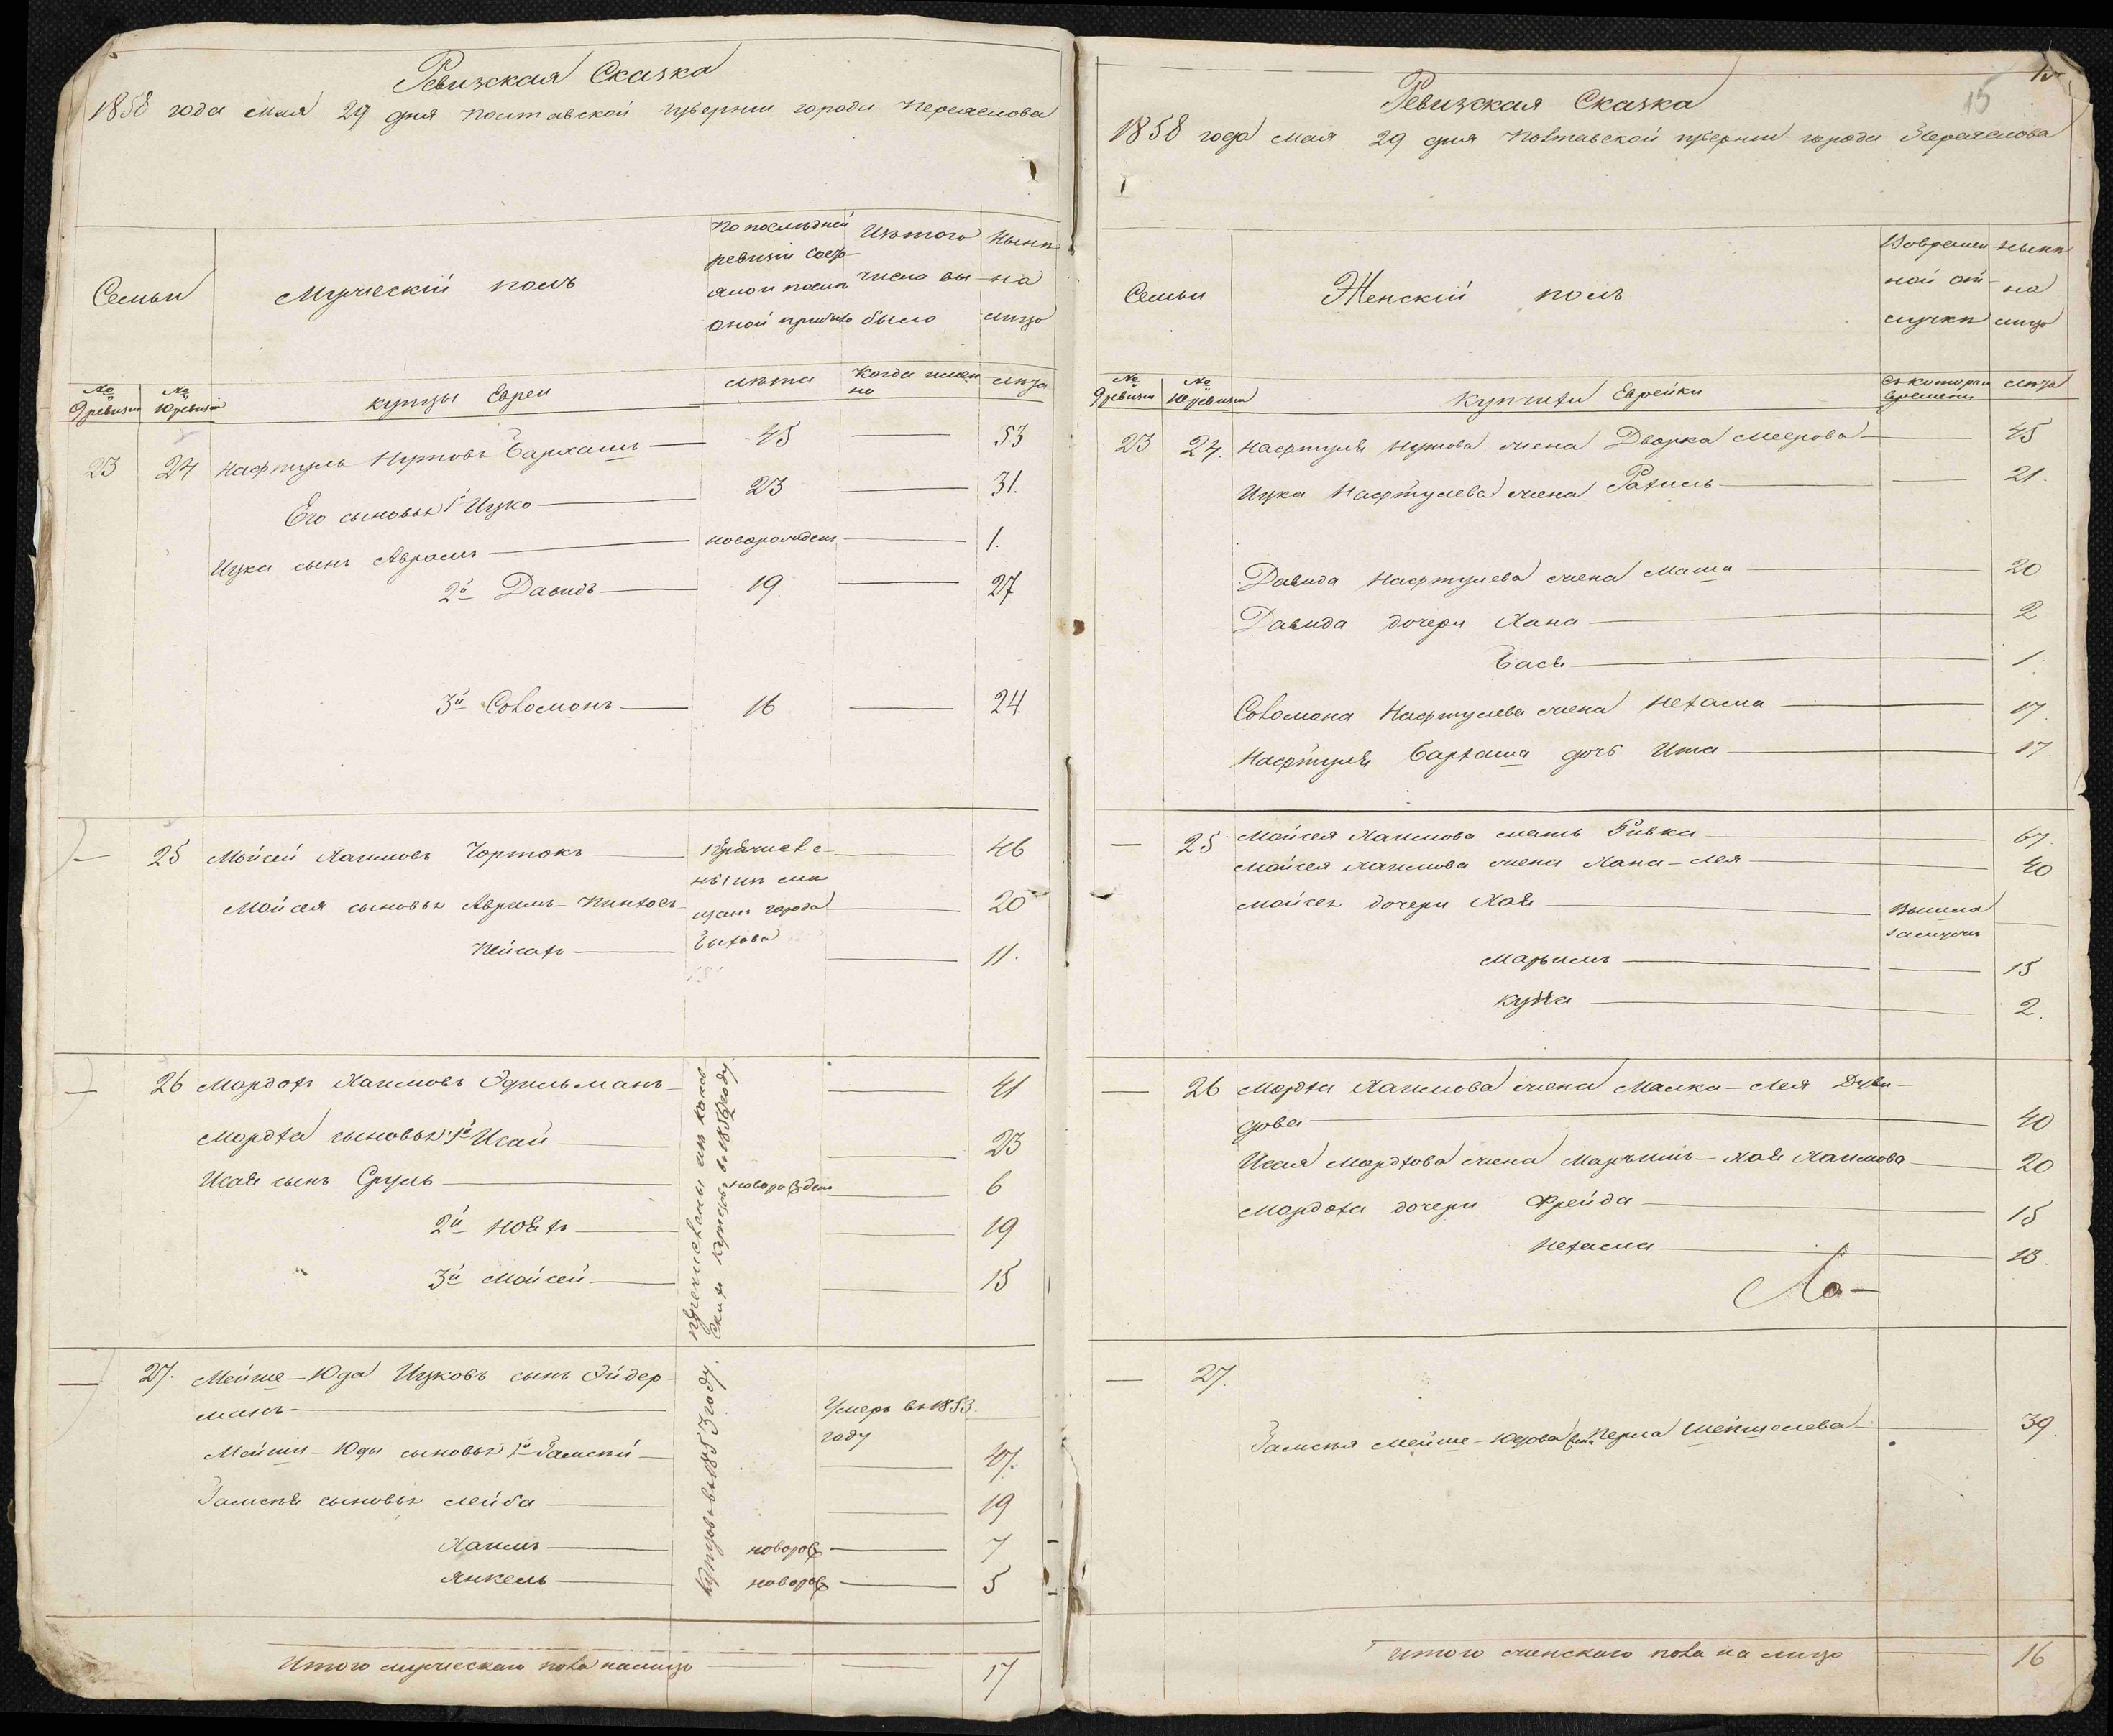 Ревижская Сказка
1858 года мая 29 дня Полтавской губернии города Переяслова
Семьи
Мужескій полъ
По последней ревизіи состояло и посли оной прибыло
Изтого числа выбыло
Нынѣ на лицо
№ 9 ревизіи
№ 10 ревизіи
купцы Евреи
лѣта
Когда имен но
лѣта
23 24 Нафтуль Нутовъ Бархашъ — 45 — 53
Его сыновья 1й Ицко — 23 — 31.
Ицка сынъ Аврамъ — новорожден — 1.
2й Давидъ — 19 — 27
3й Соломонъ — 16 — 24.
— 25 Мойсей Хаимовъ Чортокъ — 46
Мойсея сыновья Аврамъ-Пинхосъ — 20
Пейсахъ — 11.
города
Быхова
— 26 Мордохъ Хаимовъ Эдильманъ — 41
Мордха сыновья 1й Исай — 23
Исая сынъ Сруль — новорожден — 6
2й Ноахъ — 19
3й Мойсей — 15
купцовъ в 1850 году.
— 27. Мейше-Юда Ицковъ сынъ Эйдер
манъ — Умеръ в 1853
году
Мейши-Юды сыновья 1й Замскій — 47.
Замскія сыновья Лейба — 19
Хаимъ — новорож — 7
Янкель — новорож — 5
Купцовъ в 1853 году.
Итого мужескаго пола налицо — 17
15
15
Ревижская Сказка
1858 года мая 29 дня Полтавской губерніи города Переяслова
Семьи
Женскій полъ
Вовремен ной от лучки
Нынѣ на лицо
№ 9 ревизіи
№ 10 ревизіи
купчихи Еврейки
съ котораго времени
лѣта
23 24. Нафтуля Нутова жена Дворка Меерова — 45
Ицка Нафтулева жена Рахиль — 21.
Давида Нафтулева жена Маша — 20
Давида дочери Хана — 2
Бася — 1.
Соломона Нафтулева жена Нехама — 17.
Нафтуля Бархаша дочь Ита — 17.
— 25 Мойсея Хаимова мать Ривка — 67.
Мойсея Хаимова жена Хана-Лея — 40
Мойсея дочери Хая — Вышла
замужъ
Марьямъ — 15
Куна — 2.
— 26 Мордха Хаимова жена Малка-Лея Дуви-
дова — 40
Исая Мордхова жена Марьимъ-Хая Хаимова — 20
Мордоха дочери Фрейда — 15
Нехама — 13.
Ла-
— 27.
Замскія Мейше-Юдова жена Перла Шепшелева — 39.
Итого женскаго пола на лицо — 16